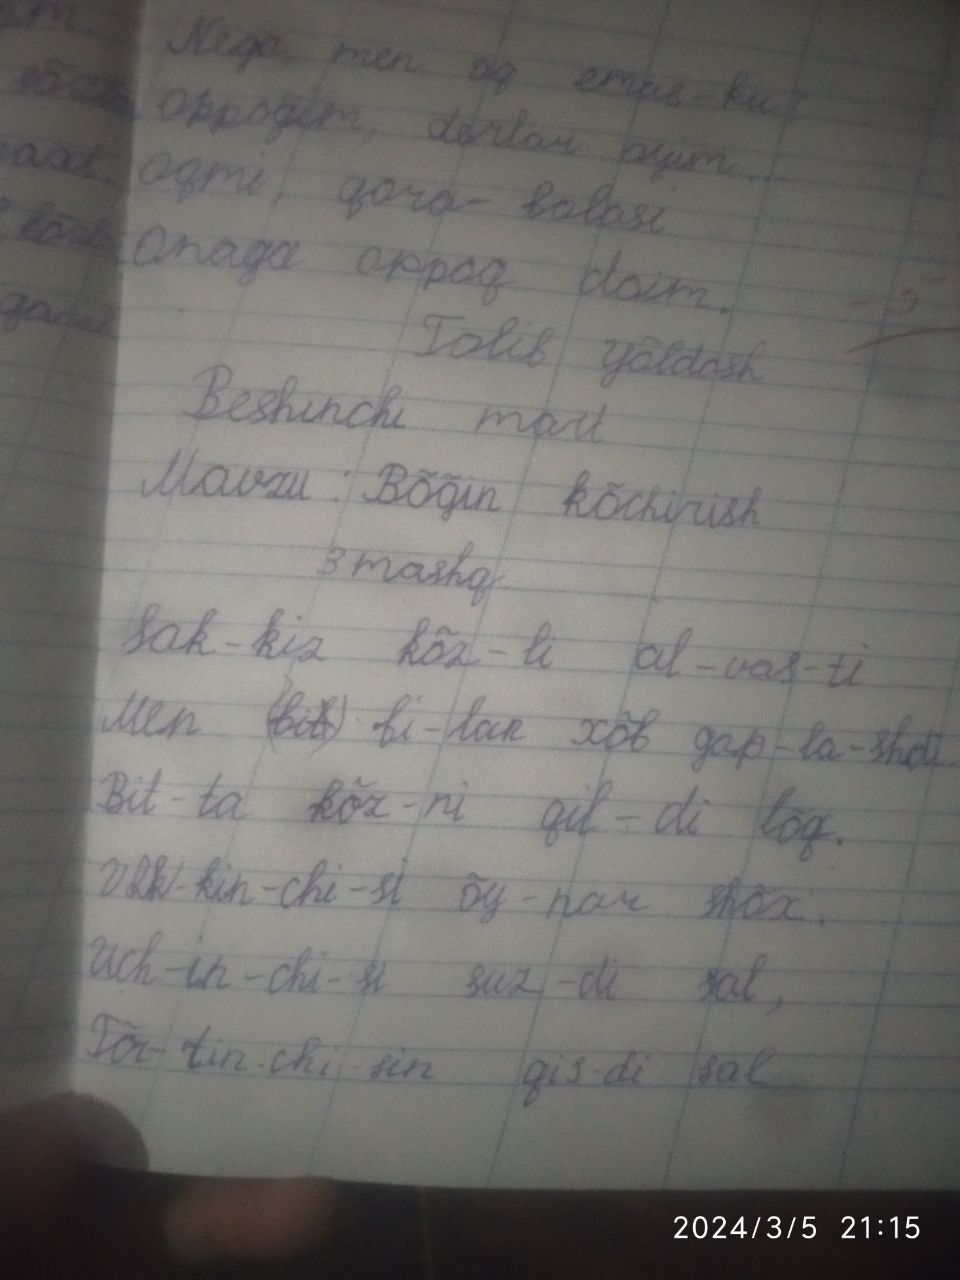 Nega, men oq emas-ku?
oppoğim, derlar oyim...
oqmi, qora- bolasi
Onaga oppoq doim.
Tolib yõldosh
Beshinchi mart
Mavzu: Bõğin kõchirish
3 mashq
Sak-kiz kõz-li al-vas-ti
Men bi-lan xõb gap-la-shdi.
Bit-ta kõz-ni qil-di lõq.
kin-chi-si õy-nar shõx.
Uch-in-chi-si suz-di sal,
Tõr-tin-chi-sin qis-di sal
2024/3/5 21:15